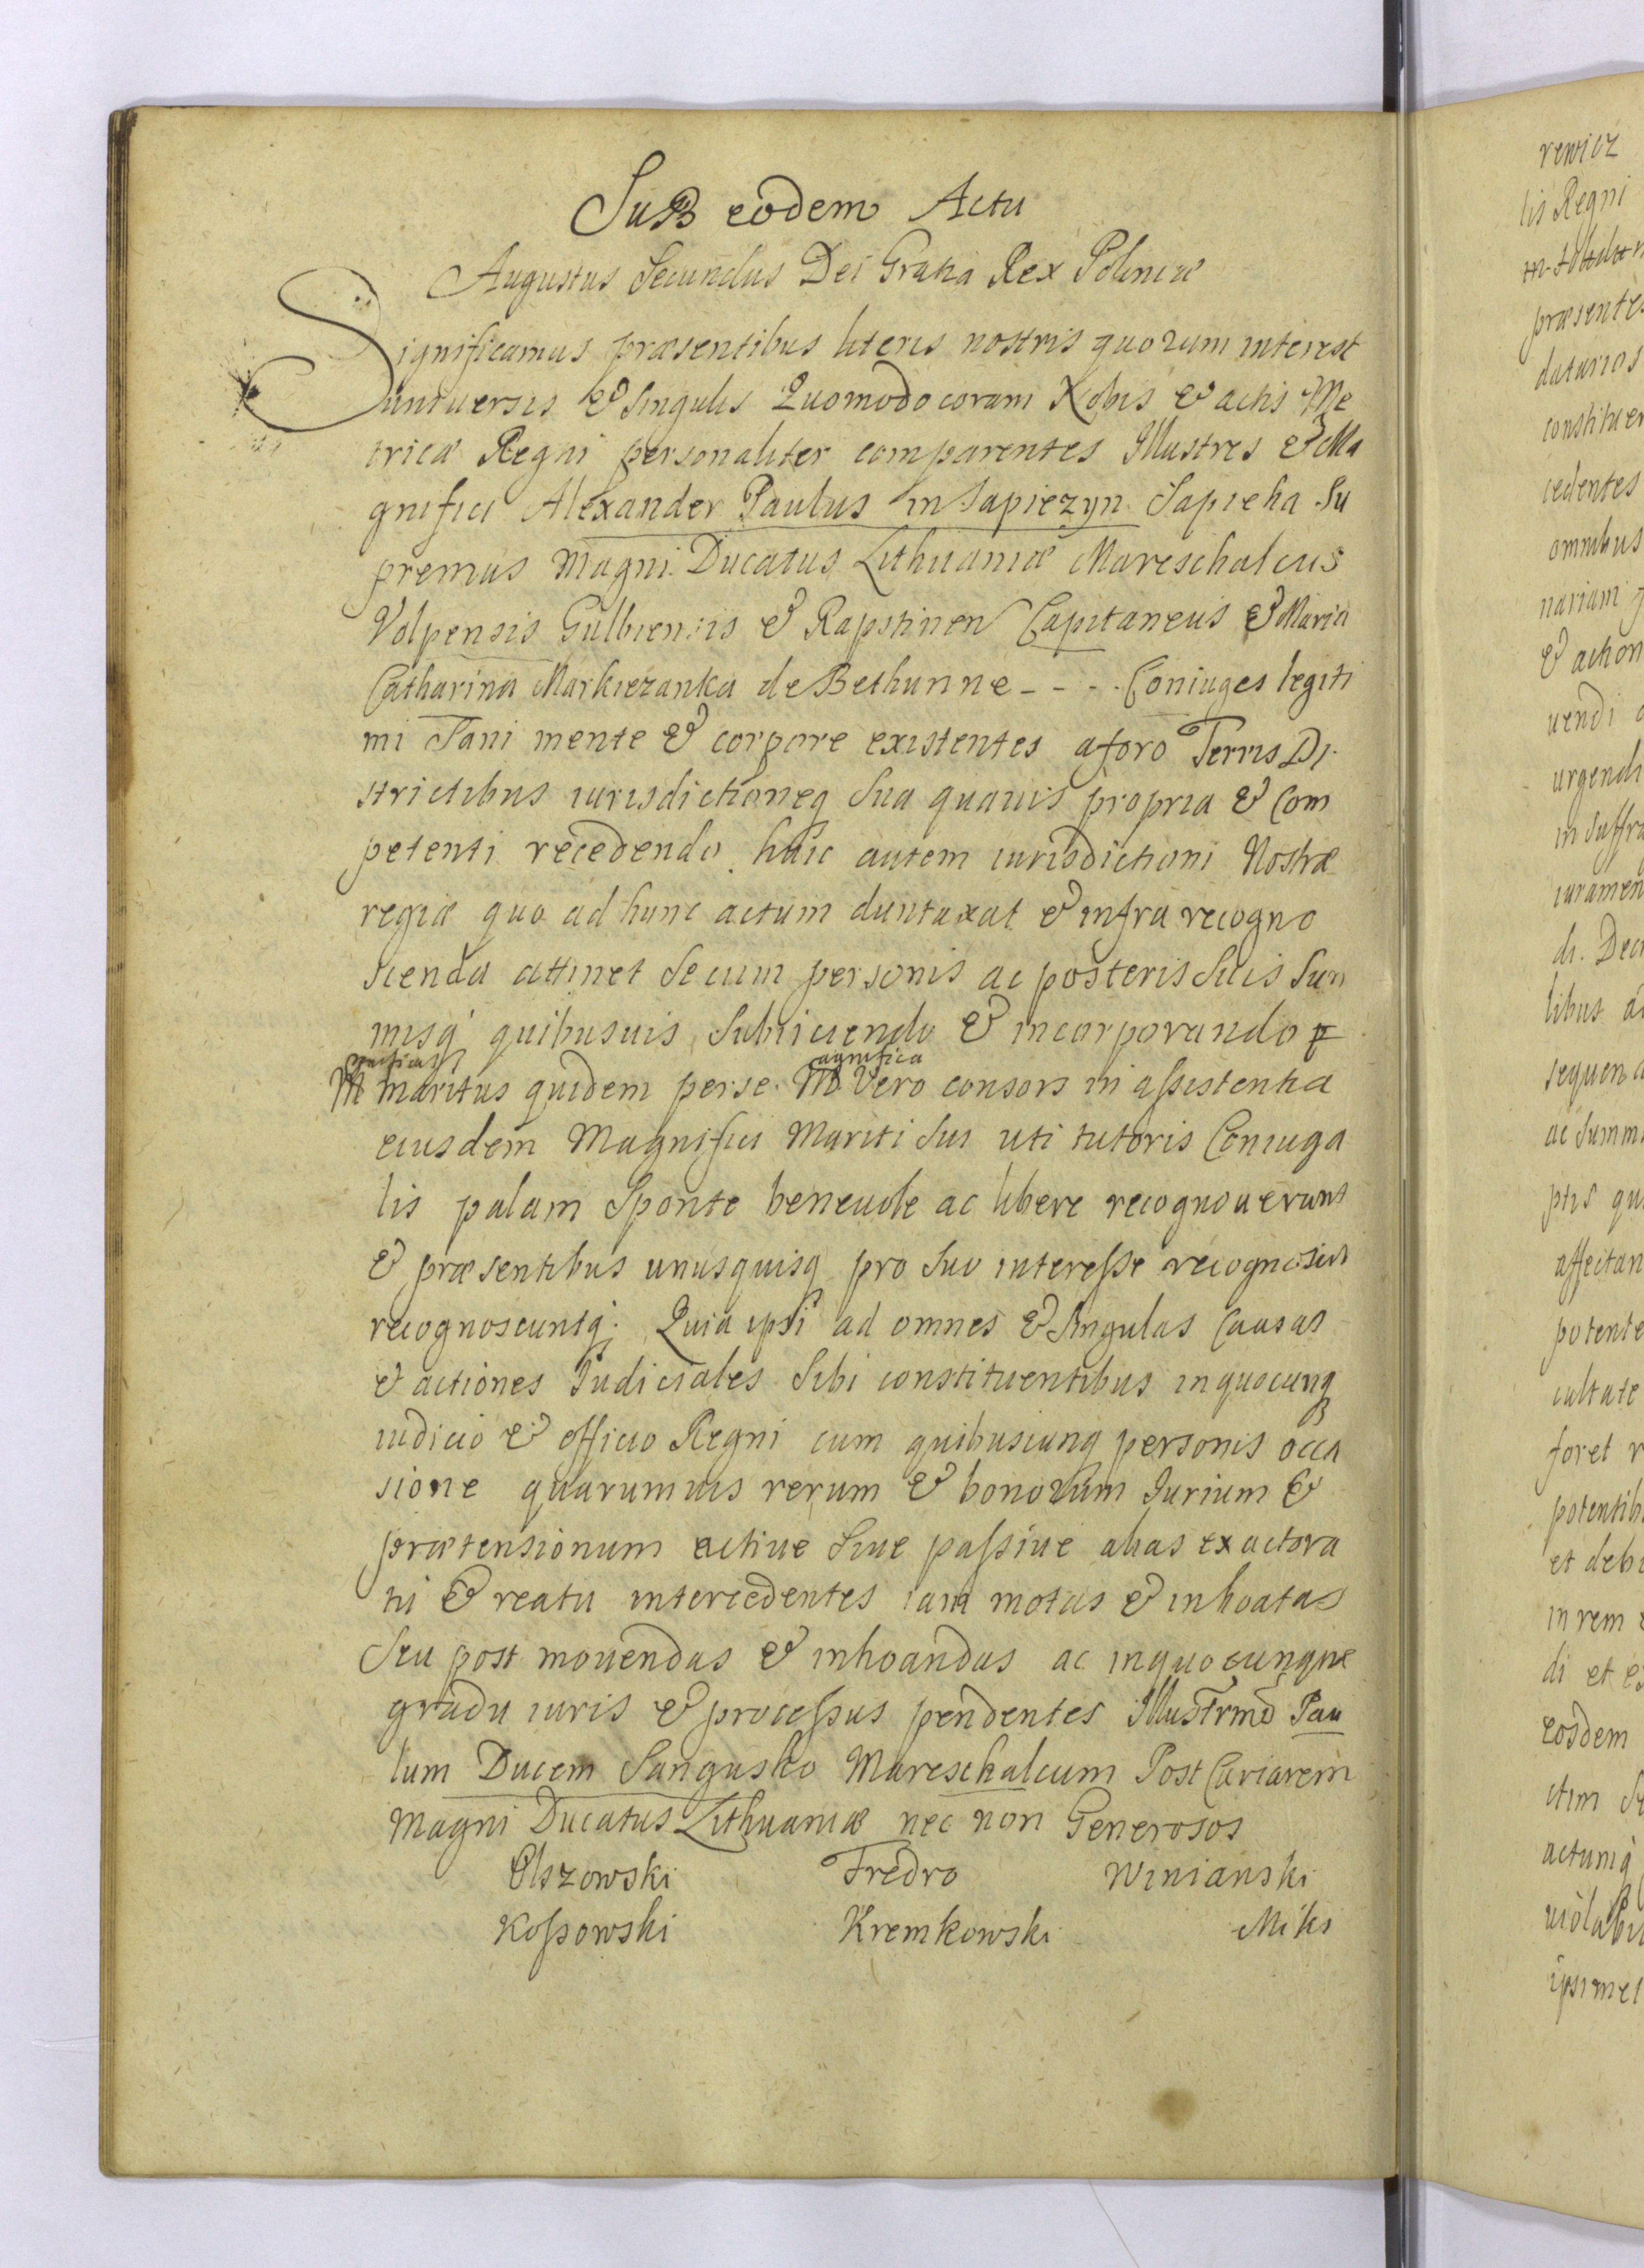 SuB eodem Actu
Augustus Secundus Dei Gratia Rex Poloniæ
Significamus præsentibus literis nostris quorum interest
universis & Singulis Quomodo coram Nobis & actis Me
tricæ Regni personaliter comparentes Illustres & Ma
gnifici Alexander Paulus in Sapiezyn Sapieha Su
premus Magni Ducatus Lithuaniæ Mareschalcus
Volpensis Gulbiensis & Rapstinen Capitaneus & Maria
Catharina Markiezanka de Bethunne - - - - Coniuges legiti
mi Sani mente & corpore existentes a foro Terris Di
strictibus iurisdictioneq Sua quauis propria & Com
petenti recedendo huic autem iurisdictioni Nostræ
regiæ quo ad hunc actum duntaxat & infra recogno
scenda attinet Se cum personis ac posteris Suis Sum
misq quibusuis Subiiciendo & incorporando
M gnificus maritus quidem per se M agnifica Vero consors in assistentia
eiusdem Magnifici Mariti Sui uti tutoris Coniuga
lis palam Sponte beneuole ac libere recognouerunt
& præsentibus unusquisq pro Suo interesse recognoscit
recognoscuntq. Quia ipsi ad omnes & Singulas Causas
& actiones Iudiciales Sibi constituentibus in quocunq
iudicio & officio Regni cum quibuscunq personis occa
sione quarumuis rerum & bonorum Iurium &
prætensionum actiue Siue passiue alias ex actora
tu & reatu intercedentes iam motas & inhoatas
Seu post mouendas & inhoandas ac in quocunque
gradu iuris & processus pendentes Illustrmo Pau
lum Ducem Sangusko Mareschalcum Post Curiarem
Magni Ducatus Lithuaniæ nec non Generosos
Olszowski Fredro Winianski
Kossowski Kremkowski Miks
rewicz
lis Regni
præsentes
datarios
constituen
cedentes
omnibus
nariam
& action
uendi
urgendi
in Suffra
iuramen
di. Decr
libus
sequen
ac Summ
ptis qu
affectan
potente
cultate
foret r
potentib
et debi
in rem
di et e
eosdem
ctim S
actumq
uiolabi
ipsimet